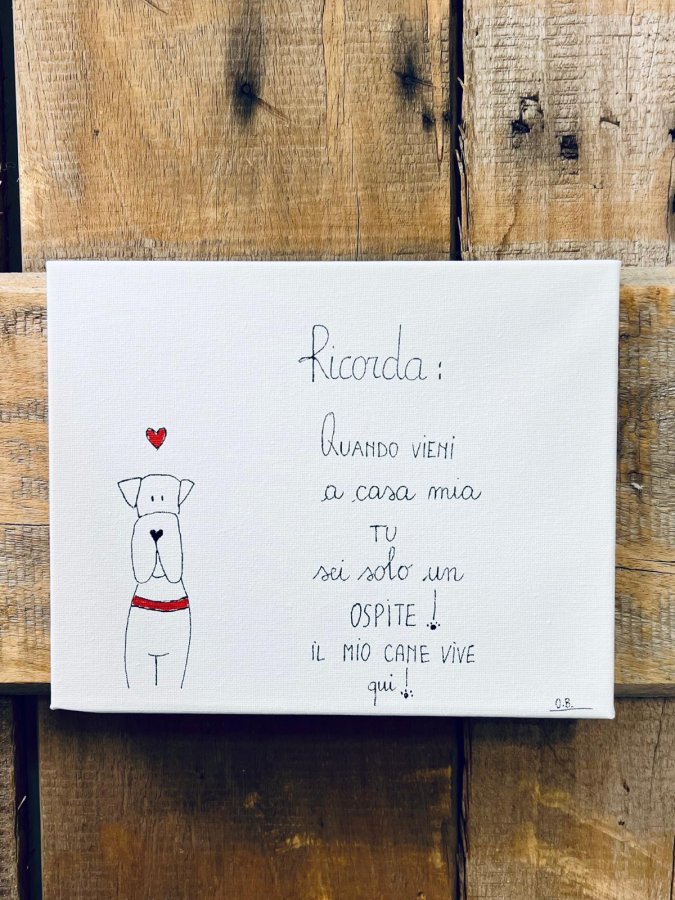 Ricorda:
QUANDO VIENI
a casa mia
TU
sei solo un
OSPITE!
iL MiO CANE VIVE
qui!
O.B.